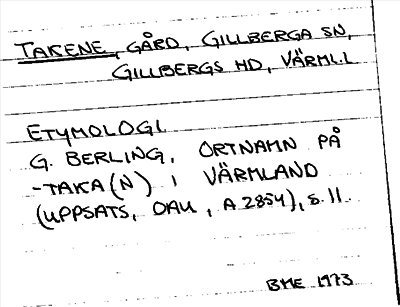 TAKENE, GÅRD, GILLBERGA SN,
GILLBERGS HD, VÄRML.L
ETYMOLOGI
G. BERLING, ORTNAMN PÅ
-TAKA(N) I VÄRMLAND
(UPPSATS, OAU, A 2854), s. 11.
BME 1973